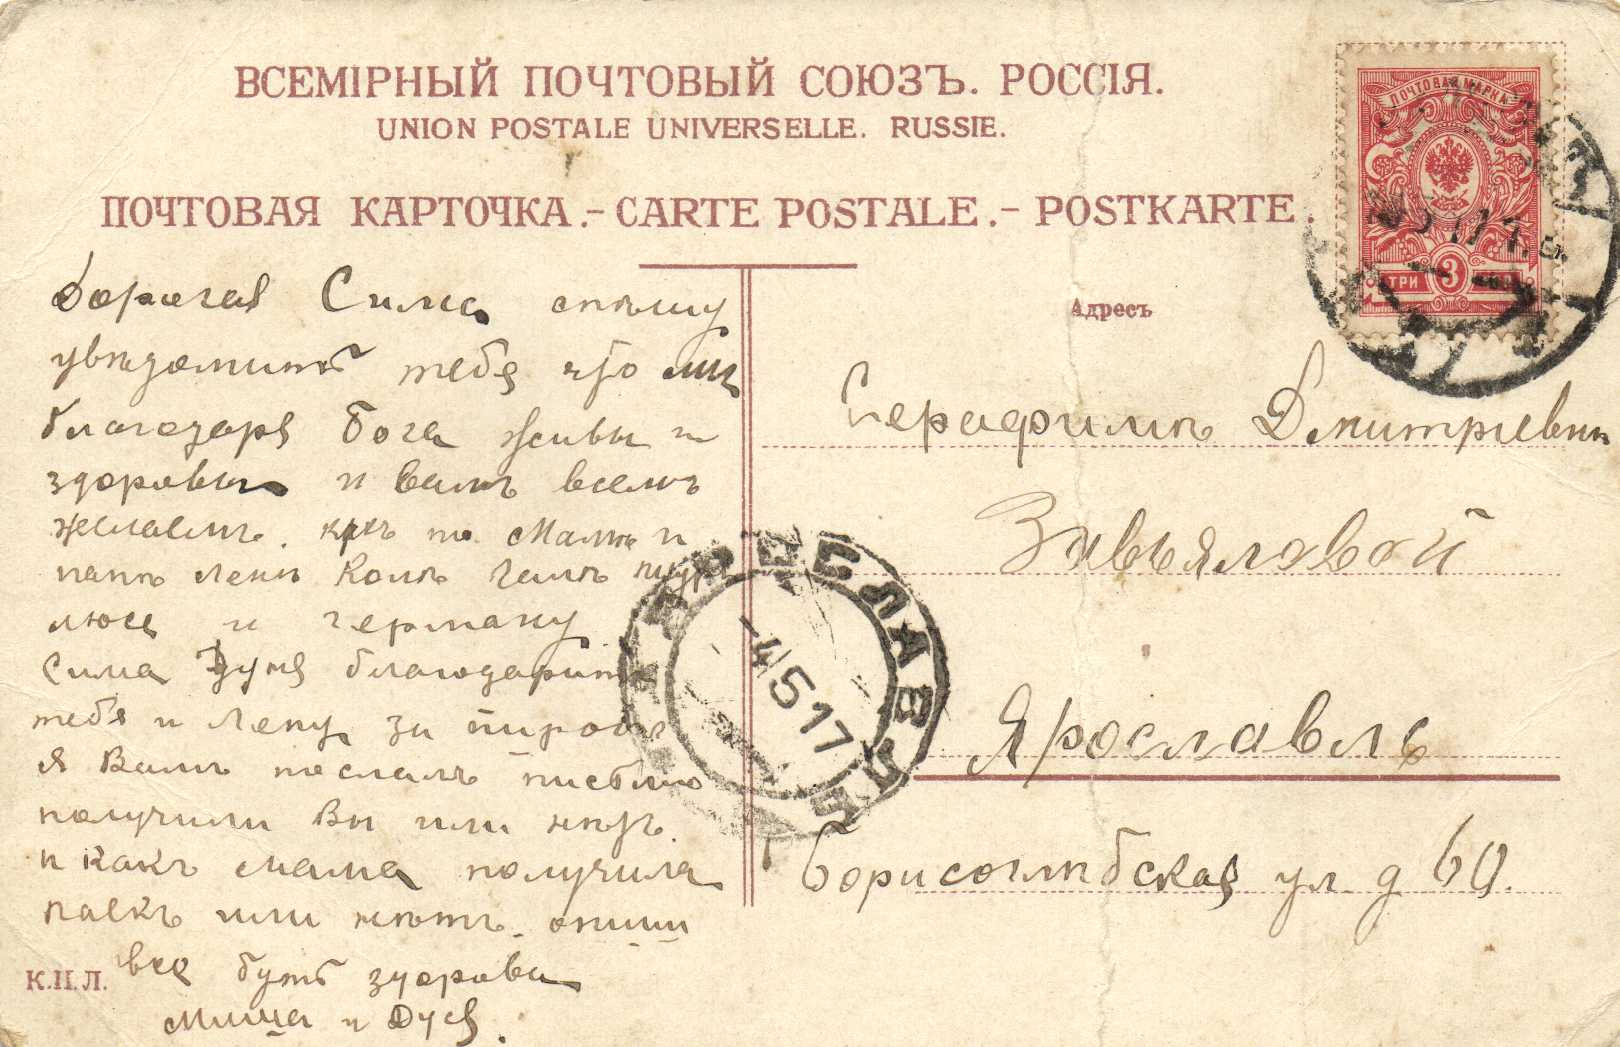 ВСЕМІРНЫЙ ПОЧТОВЫЙ СОЮЗЪ. РОССІЯ.
UNION POSTALE UNIVERSELLE. RUSSIE.
ПОЧТОВАЯ КАРТОЧКА.-CARTE POSTALE.-POSTKARTE.
ПОЧТОВАЯ МАРКА
ТРИ 3
Дорогая Сима спѣшу
увѣдомить тебя что мы
благодаря бога живы и
здоровы и вамъ всемъ
желаемъ. какъ то Мамѣ и
папѣ лени Колѣ галѣ шурѣ
люсе и герману
Сима Дуня благодаритъ
тебя и Лену за пироги
я Вамъ послалъ писмо
получили Вы или нѣтъ.
и какъ мама получила
паекъ или нѣтъ. опиши
все будь здорова
Миша и Дуся.
К.П.Л.
Адресъ
Серафимѣ Дмитріевнѣ
Завьяловой
Ярославль
Борисоглѣбская ул. д 60.
ЯРОСЛАВЛЬ
-4 5 17